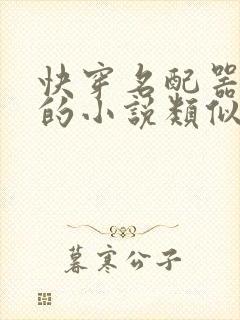 快穿名配器
的小說類似
暮寒公子